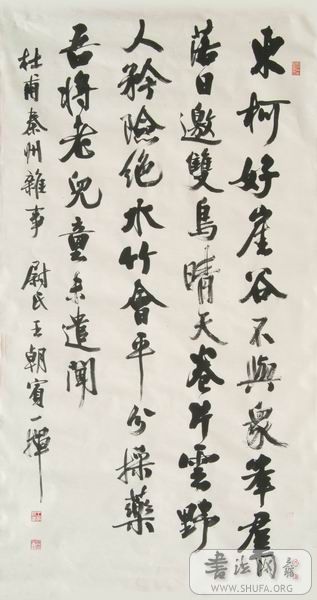 東柯好崖谷不與衆峯群
落日邀雙鳥晴天卷片雲野
人矜險絕水竹會平分採藥
吾將老兒童未遣聞
杜甫秦州雜事 尉氏王朝賓一揮
書法网
WWW.SHUFA.ORG